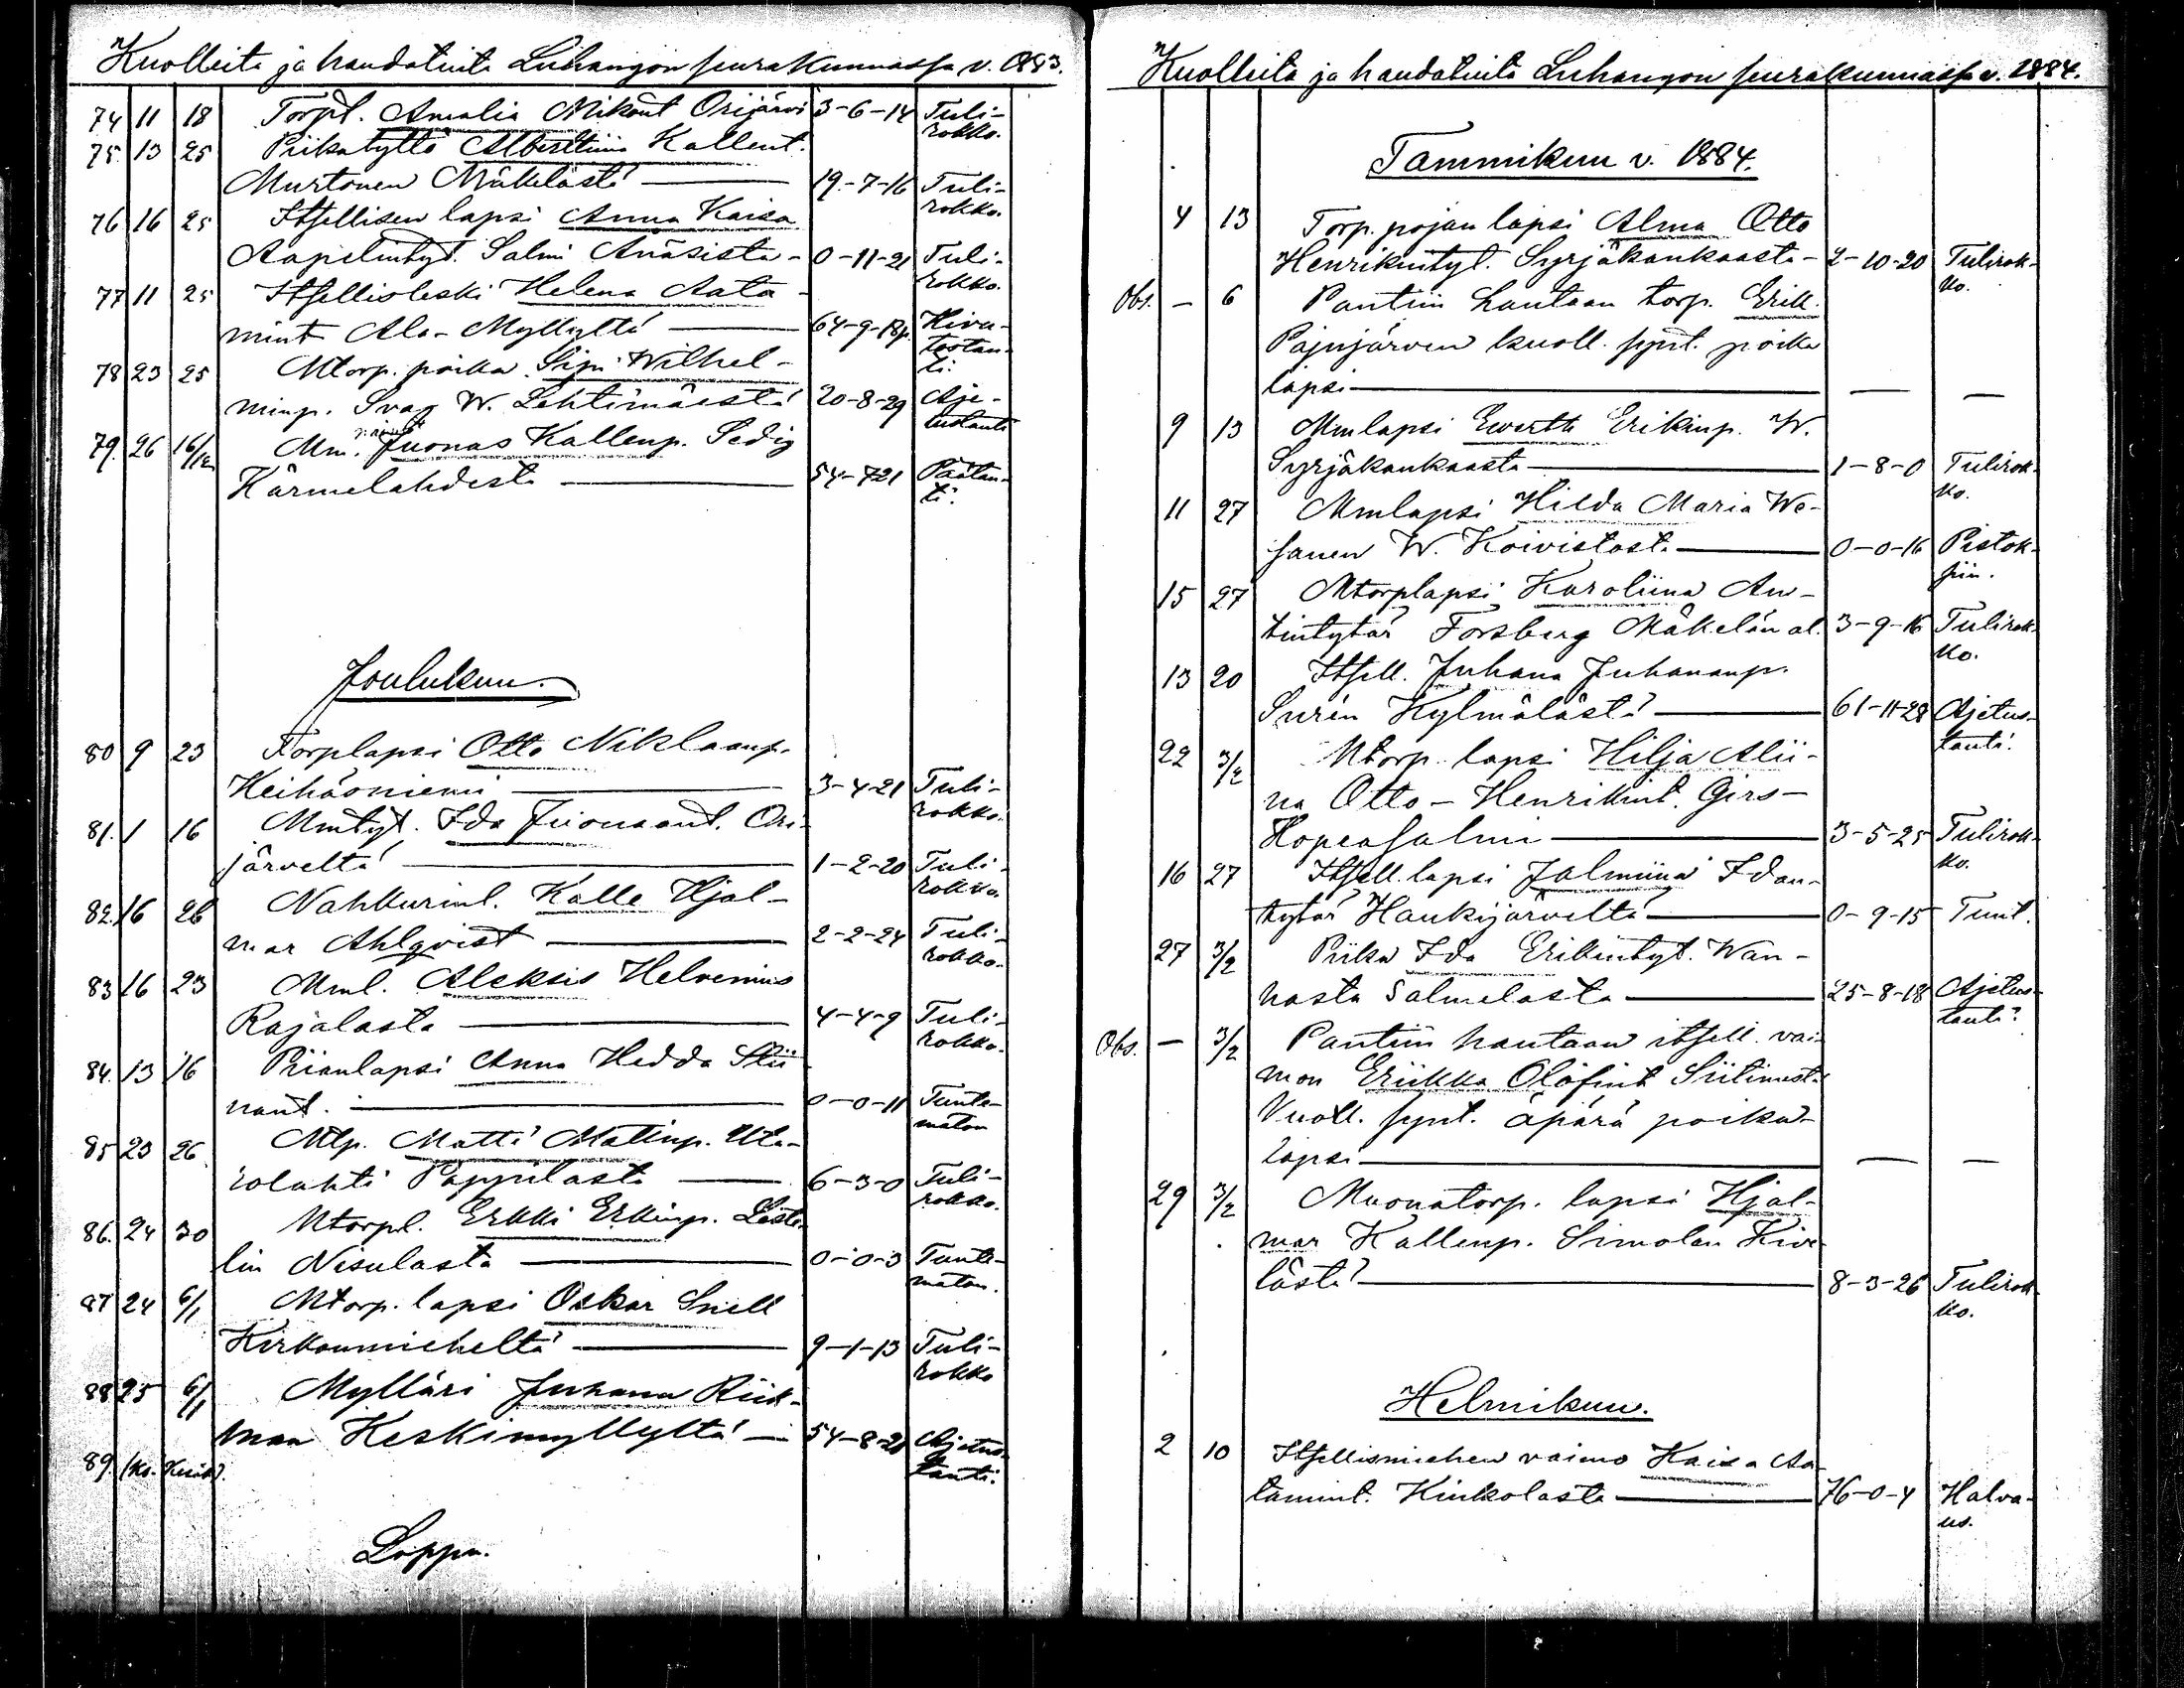 Kuolleita ja haudatuita Luhangon seurakunnassa v. 1883.
74 11 18 Torpl. Amalia Mikont Orijärvi 3-6-14 Tuli-
rokko.
75. 13 25 Piikatyttö Albertiina Kallent.
Murtonen Mäkelästä 19-7-16 Tuli-
rokko.
76 16 25 Itsellisen lapsi Anna Kaisa
Aapelintyt. Salmi Anäsista 0-11-21 Tuli-
rokko.
77 11 25 Itsellisleski Helena Aata-
mint Ala-Myllyltä 64-9-18 Kivu-
tostan-
ti.
78 23 25 Mtorp. poika Sipi Wilhel-
minp. Svag W. Lehtimäestä 20-8-29 Aje-
tustauti
79. 26 16/12 Mm. Juonas Kallenp. Sedig
Kärmelahdesta 54-7-21 Päätau-
ti.
Joulukuu.
80 9 23 Torplapsi Otto Niklaanp.
Keihäsniemi 3-4-21 Tuli-
rokko.
81. 1 16 Mmtyt. Ida Juonaant. Ori-
järveltä 1-2-20 Tuli-
rokko.
82. 16 26 Nahkurinl. Kalle Hjal-
mar Ahlqvist 2-2-24 Tuli-
rokko.
83 16 23 Mml. Aleksis Helvenius
Rajalasta 4-4-9 Tuli-
rokko.
84. 13 16 Piianlapsi Anna Hedda Stii
nant. 0-0-11 Tunte-
maton
85 23 26 Mlp. Matti Matinp. Uta-
iolahti Pappilasta 6-3-0 Tuli-
rokko.
86. 24 30 Mtorpl. Erkki Erkinp. Leste-
lin Nisulasta 0-0-3 Tunte-
maton.
87 24 6/1 Mtorp. lapsi Oskar Snell
Kirkonmieheltä 9-1-13 Tuli-
rokko
88 25 6/1 Mylläri Juhana Riik-
man Keskimyllyltä 54-8-21 Ajetus-
tauti.
89.
Loppu.
Kuolleita ja haudatuita Luhangon seurakunnassa v. 1884.
Tammikuu v. 1884.
4 13 Torp. pojan lapsi Alma Otto
Henrikintyt. Syrjäkankaasta 2-10-20 Tulirok-
ko.
Obs. - 6 Pantiin hautaan torp. Erik
Pajujärven kuoll. synt. poika
lapsi — —
9 13 Mmlapsi Ewertti Erikinp. W.
Syrjäkankaasta 1-8-0 Tulirok-
ko.
11 27 Mmlapsi Hilda Maria We-
sanen W. Koivistost. 0-0-16 Pistok-
siin.
15 27 Mtorplapsi Karoliina An-
tintytär Forsberg Mäkelän al. 3-9-16 Tulirok-
ko.
13 20 Itsell. Juhana Juhananp.
Surén Kylmälästä 61-11-28 Ajetus-
tauti.
22 3/2 Mtorp. lapsi Hilja Alii-
na Otto-Henrikint. Girs-
Hopeasalmi 3-5-25 Tulirok-
ko.
16 27 Itsell. lapsi Jalmiina Idan-
tytär Haukijärveltä 0-9-15 Tunt.
27 3/2 Piika Ida Erikintyt. Wan-
hasta Salmelasta 25-8-18 Ajetus-
tauti.
Obs. — 3/2 Pantiin hautaan itsell. vai-
mon Eriikka Olofint Siitimestä
kuoll. synt. äpärä poika-
lapsi — —
29 3/2 Muonatorp. lapsi Hjal-
mar Kallenp. Simolan Kive-
lästä 8-3-26 Tulirok-
ko.
Helmikuu.
2 10 Itsellismiehen vaimo Kaisa Aa-
tamint. Kinkolasta 76-0-4 Halva-
us.